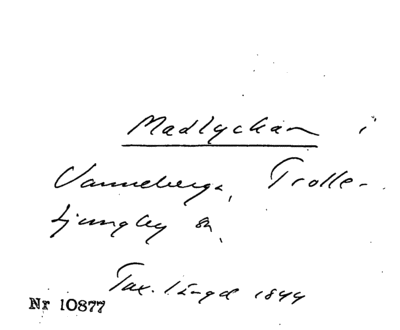 Madlyckan i
Vanneberga, Trolle-
ljungby sn.
Tax. längd 1844
Nr 10877